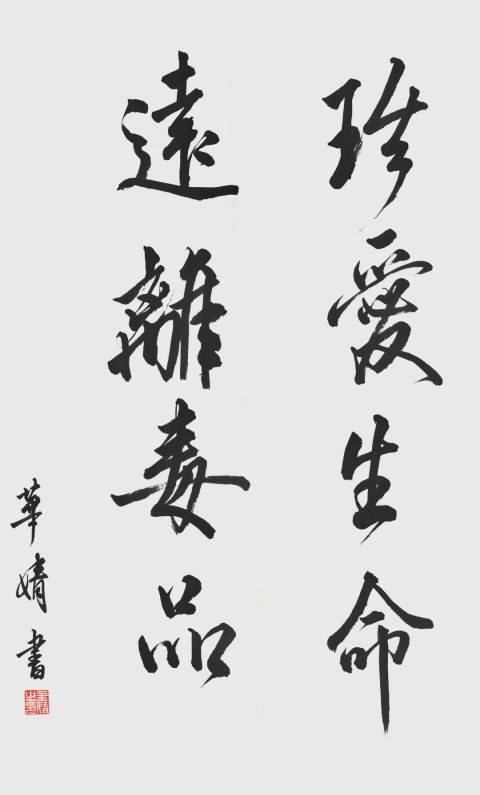 珍愛生命
遠離毒品
華婧書